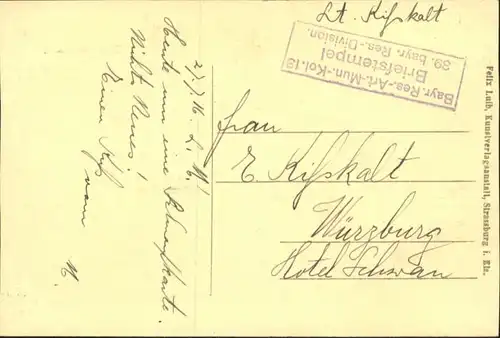 Lt. Kißkalt
Bayr.-Res.-Art.-Mun.-Kol.13
Briefstempel
39. bayr. Res.-Division.
27.7.16. L. M.!
Heute nur eine Schnapskarte.
Nichts Neues!
Einen Kuß
von
M.
Frau
E. Kißkalt
Würzburg
Hotel Schwan
Felix Luib, Kunstverlagsanstalt, Strassburg i. Els.